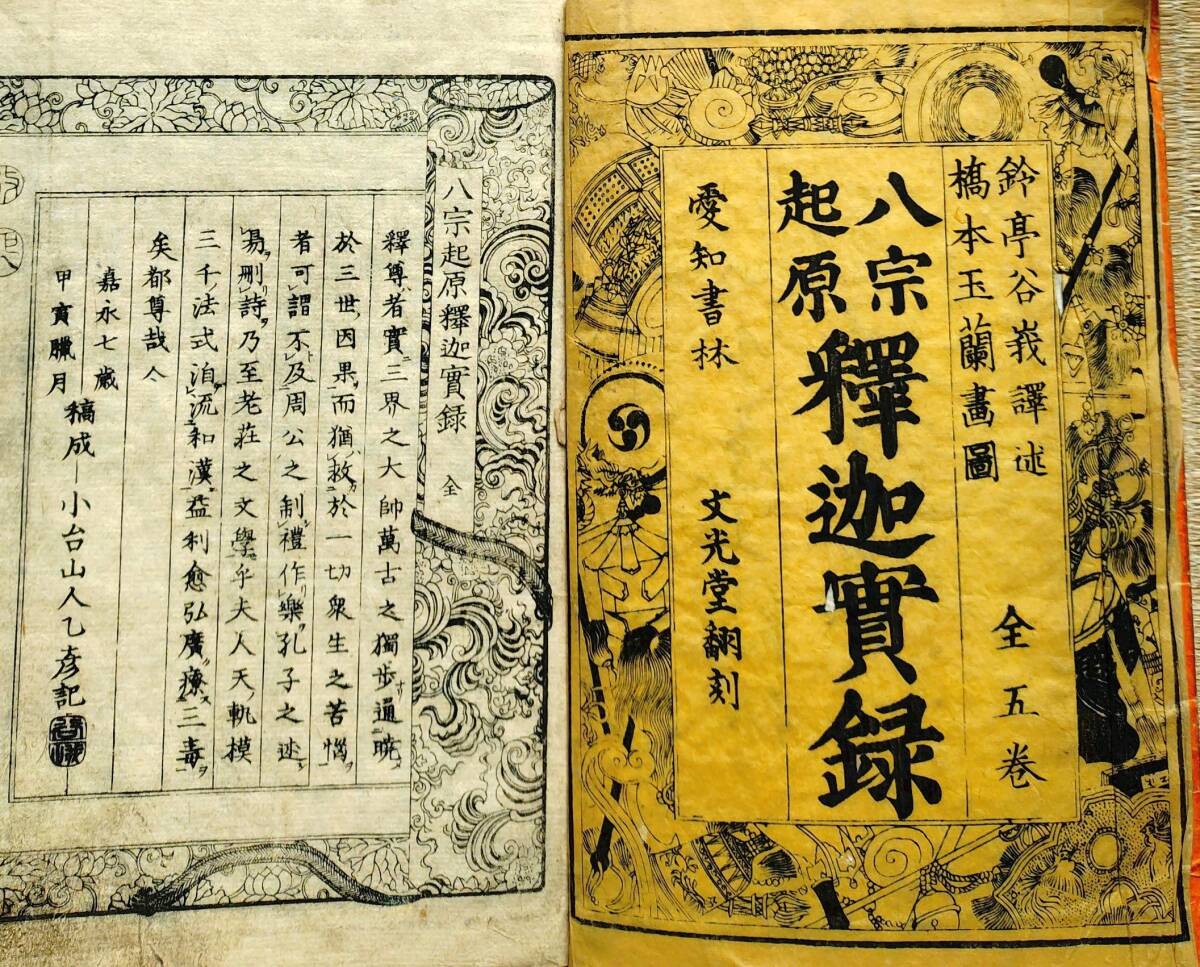 鈴亭谷峩譯述
橋本玉蘭畫圖
全五卷
八宗
起原
釋迦實録
愛知書林
文光堂翻刻
八宗起原釋迦實録
全
釋尊者實三界之大師萬古之獨歩通暁
於三世因果而猶救於一切衆生之苦惱
者可謂不及周公之制禮作樂孔子之述
易刪詩乃至老莊之文學乎夫人天軌模
三千法式洎流和漢益利愈弘廣療三毒
矣都尊哉
嘉永七歳
甲寅臘月
稿成
小台山人乙彦記